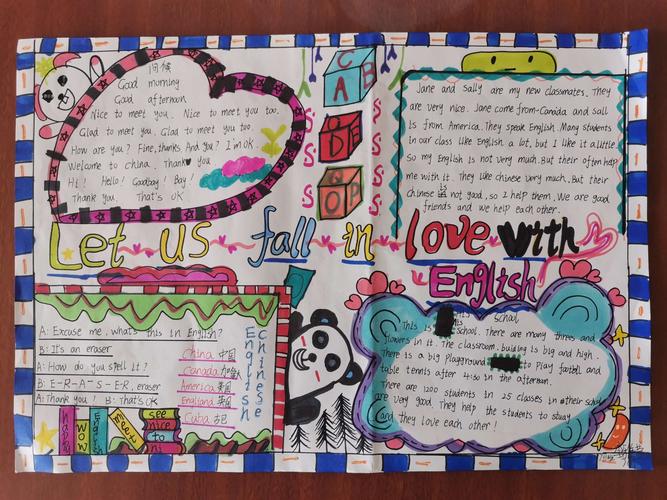 问候
Good morning
Good afternoon
Nice to meet you. Nice to meet you too.
Glad to meet you. Glad to meet you too.
How are you? Fine, thanks And you? I'm OK.
Welcome to china. Thank you
Hi! Hello! Goodbay! Bay!
Thank you. That's OK
C
A
B
D
E
O
P
Jane and sally are my new classmates. They
are very nice. Jane come from Canada and sall
is from America. They speak English. Many students
in our class like English a lot, but I like it alittle
so my English is not very much. But their often help
me with it. They like chinese very much. But their
Chinese is not good, so I help them. We are good
friends and we help each other.
Let us fall in love with
English
A: Excuse me, what's this in English?
B: It's an eraser
A: How do you spell it?
B: E-R-A-S-E-R, eraser
A: Thank you! B: That's OK
English
Chinese
China 中国
Canada 加拿大
America 美国
England 英国
Cuba 古巴
WOW
English
see
nice
to
School
This is school. There are many threes and
flowers in it. The classroom building is big and high.
There is a big playground to play football and
table tennis after 4:30 in the afternoon.
There are 1200 students in 25 classes in their school
are very good. They help the students to study
and they love each other!